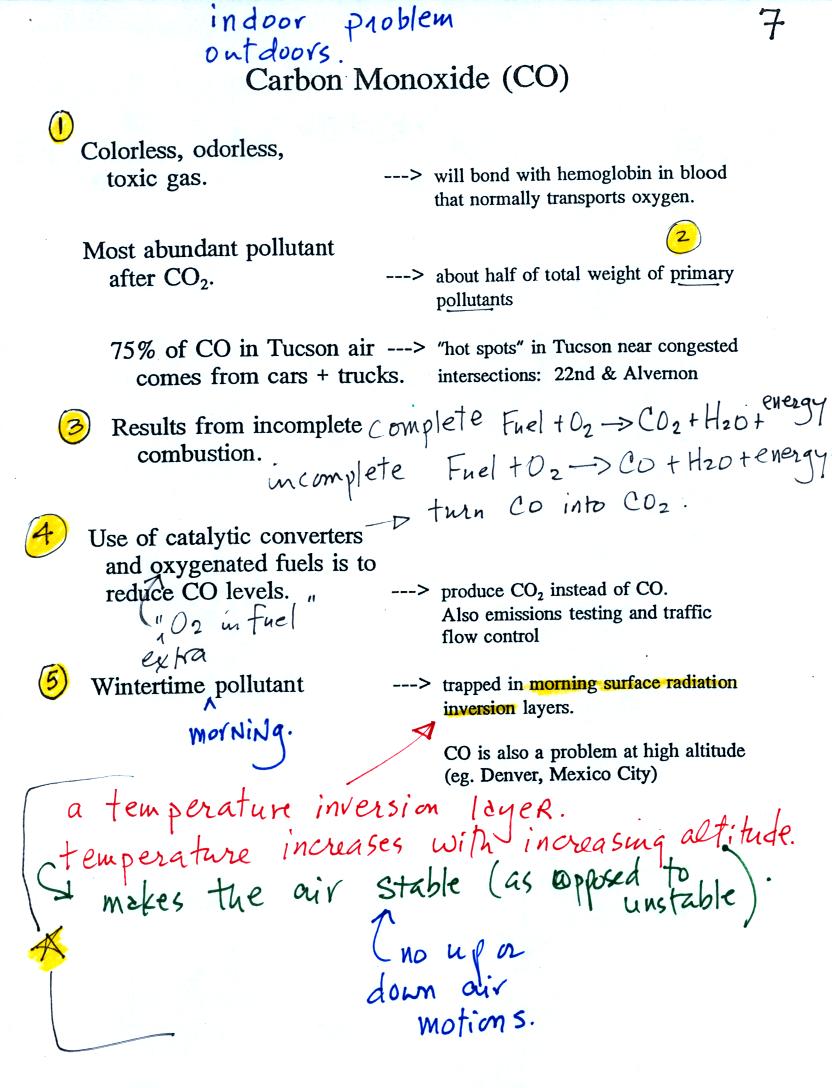 indoor problem
outdoors.
7
Carbon Monoxide (CO)
1
Colorless, odorless,
toxic gas.
---> will bond with hemoglobin in blood
that normally transports oxygen.
2
Most abundant pollutant
after CO₂.
---> about half of total weight of primary
pollutants
75% of CO in Tucson air ---> "hot spots" in Tucson near congested
comes from cars + trucks. intersections: 22nd & Alvernon
3 Results from incomplete complete Fuel + O₂ → CO₂ + H₂O + energy
combustion.
incomplete Fuel + O₂ → CO + H₂O + energy
→ turn CO into CO₂.
4 Use of catalytic converters
and oxygenated fuels is to
reduce CO levels. ---> produce CO₂ instead of CO.
Also emissions testing and traffic
flow control
"O₂ in fuel"
extra
5 Wintertime ^ pollutant ---> trapped in morning surface radiation
inversion layers.
morning.
CO is also a problem at high altitude
(eg. Denver, Mexico City)
a temperature inversion layer.
temperature increases with increasing altitude.
makes the air stable (as opposed to
unstable).
no up or
down air
motions.